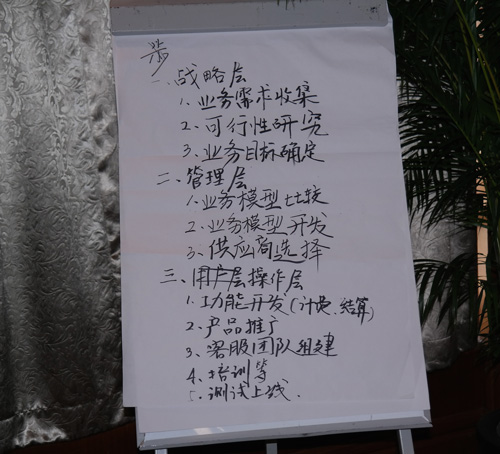 一、战略层
1. 业务需求收集
2. 可行性研究
3. 业务目标确定
二、管理层
1. 业务模型比较
2. 业务模型开发
3. 供应商选择
三、用户层操作层
1. 功能开发(计费、结算)
2. 产品推广
3. 客服团队组建
4. 培训等
5. 测试上线.